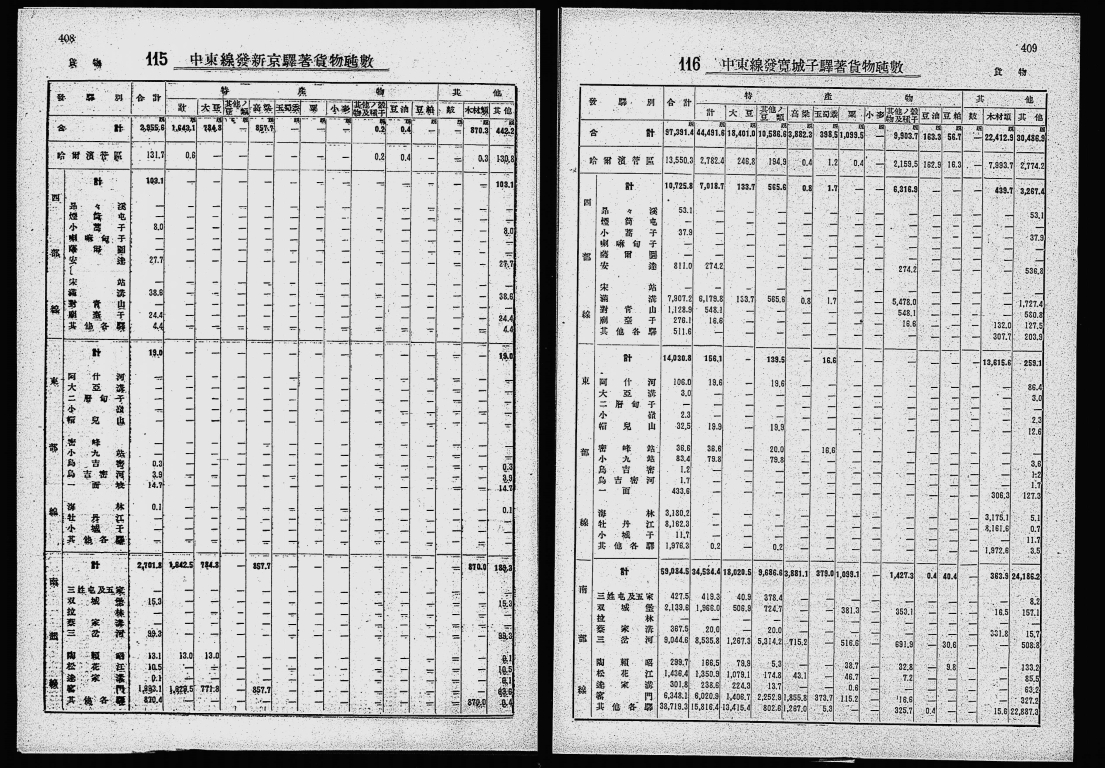 408
貨物
115 中東線發新京驛著貨物噸數
發驛別 合計 特產物 其他
計 大豆 其他ノ豆類 高粱 玉蜀黍 粟 小麥 其他ノ穀物及種子 豆油 豆粕 木材類 其他
合計 2,955.6 1,643.1 784.8 — 857.7 — — — 0.2 0.4 — — 870.3 442.2
哈爾濱管區 131.7 0.6 — — — — — — 0.2 0.4 — — 0.3 130.8
西部線
計 103.1 — — — — — — — — — — — — 103.1
昂々溪
煙筒屯
小蒿子 8.0 8.0
喇嘛甸子
薩爾圖
安達 27.7 27.7
宋站
滿溝 38.6 38.6
對青山
廟臺子 24.4 24.4
其他各驛 4.4 4.4
東部線
計 19.0 19.0
阿什河
二層甸子
小嶺
帽兒山
密峰
小九站
烏吉密 0.3 0.3
烏吉密河 3.9 3.9
一面坡 14.7 14.7
海林 0.1 0.1
牡丹江
小城子
其他各驛
南部線
計 2,701.8 1,642.5 784.8 — 857.7 870.0 189.3
三姓屯及五家
双城堡 15.3 15.3
拉林
蔡家溝
三岔河 99.3 99.3
陶賴昭 13.1 13.0 13.0 0.1
松花江 10.5 10.5
達家溝 0.1 0.1
窰門 1,693.1 1,629.5 771.8 — 857.7 63.6
其他各驛 870.4 870.0 0.4
409
貨物
116 中東線發寬城子驛著貨物噸數
發驛別 合計 特產物 其他
計 大豆 其他ノ豆類 高粱 玉蜀黍 粟 小麥 其他ノ穀物及種子 豆油 豆粕 木材類 其他
合計 97,391.4 44,491.6 18,401.0 10,586.6 3,882.3 398.5 1,099.5 — 9,903.7 163.3 56.7 — 22,412.9 30,486.9
哈爾濱管區 13,550.3 2,782.4 246.8 194.9 0.4 1.2 0.4 — 2,159.5 162.9 16.3 — 7,993.7 2,774.2
西部線
計 10,725.8 7,018.7 133.7 565.6 0.8 1.7 — — 6,316.9 — — — 439.7 3,267.4
昂々溪 53.1 53.1
煙筒屯
小蒿子 37.9 37.9
喇嘛甸子
薩爾圖
安達 811.0 274.2 274.2 536.8
宋站
滿溝 7,907.2 6,179.8 133.7 565.6 0.8 1.7 5,478.0 1,727.4
對青山 1,128.9 548.1 548.1 580.8
廟臺子 276.1 16.6 16.6 132.0 127.5
其他各驛 511.6 307.7 203.9
東部線
計 14,030.8 156.1 — 139.5 — 16.6 13,615.6 259.1
阿什河 106.0 19.6 19.6 86.4
大亞溝 3.0 3.0
二層甸子
小嶺 2.3 2.3
帽兒山 32.5 19.9 19.9 12.6
密峰站 36.6 36.6 20.0 16.6
小九站 83.4 79.8 3.6
烏吉密 1.2 1.2
烏吉密河 1.7 1.7
一面 433.6 306.3 127.3
海林 3,180.2 3,175.1 5.1
牡丹江 8,162.3 8,161.6 0.7
小城子 11.7 11.7
其他各驛 1,976.3 0.2 0.2 1,972.6 3.5
南部線
計 59,084.5 34,534.4 18,020.5 9,686.6 3,881.1 379.0 1,099.1 — 1,427.3 0.4 40.4 — 363.9 24,186.2
三姓屯及五家 427.5 419.3 40.9 378.4 8.2
双城堡 2,139.6 1,966.0 506.9 724.7 381.3 353.1 16.5 157.1
拉林
蔡家溝 367.5 20.0 20.0 331.8 15.7
三岔河 9,044.6 8,535.8 1,267.3 5,314.2 715.2 516.6 691.9 30.6 508.8
陶賴昭 299.7 166.5 79.9 5.3 38.7 32.8 9.8 133.2
松花江 1,436.4 1,350.9 1,079.1 174.8 43.1 46.7 7.2 85.5
達家溝 301.8 238.6 224.3 13.7 0.6 63.2
窰門 6,348.1 6,020.9 1,406.7 2,252.9 1,855.8 373.7 115.2 16.6 327.2
其他各驛 38,719.3 15,816.4 13,415.4 802.6 1,267.0 5.3 325.7 0.4 15.6 22,887.3